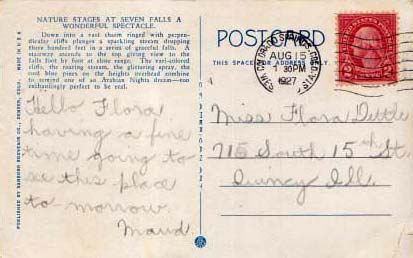 NATURE STAGES AT SEVEN FALLS A
WONDERFUL SPECTACLE.
Down into a vast chasm ringed with perpen-
dicular cliffs plunges a sparkling stream dropping
three hundred feet in a series of graceful falls. A
stairway ascends to the top giving view to the
falls foot by foot at close range. The vari-colored
cliffs, the roaring stream, the glistening spray, the
cool blue pines on the heights overhead combine
to remind one of an Arabian Nights dream—too
enchantingly perfect to be real.
Hello Flora
having a fine
time going to
see this place
to-morrow.
Maud.
PUBLISHED BY SANBORN SOUVENIR CO., DENVER, COLO. MADE IN U.S.A.
POSTCARD
THIS SPACE FOR ADDRESS ONLY
COLORADO SPRINGS
AUG 15
1 30PM
1927
2 2
Miss Flora Dettle
715 South 15th St.
Quincy Ill.